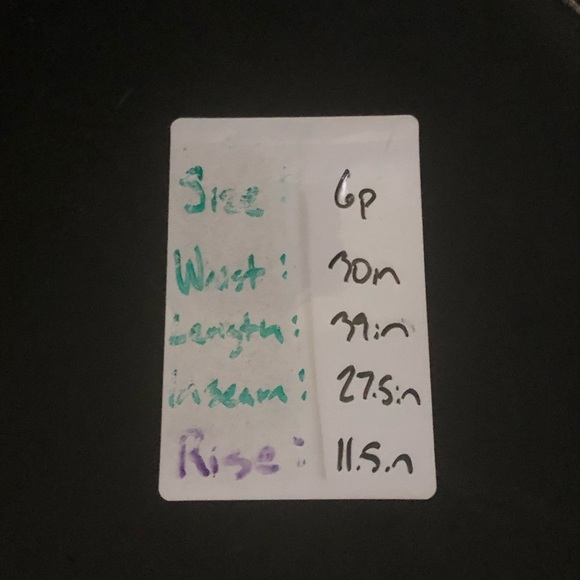 Size: 6p
Waist: 30in
Length: 39in
Inseam: 27.5in
Rise: 11.5in